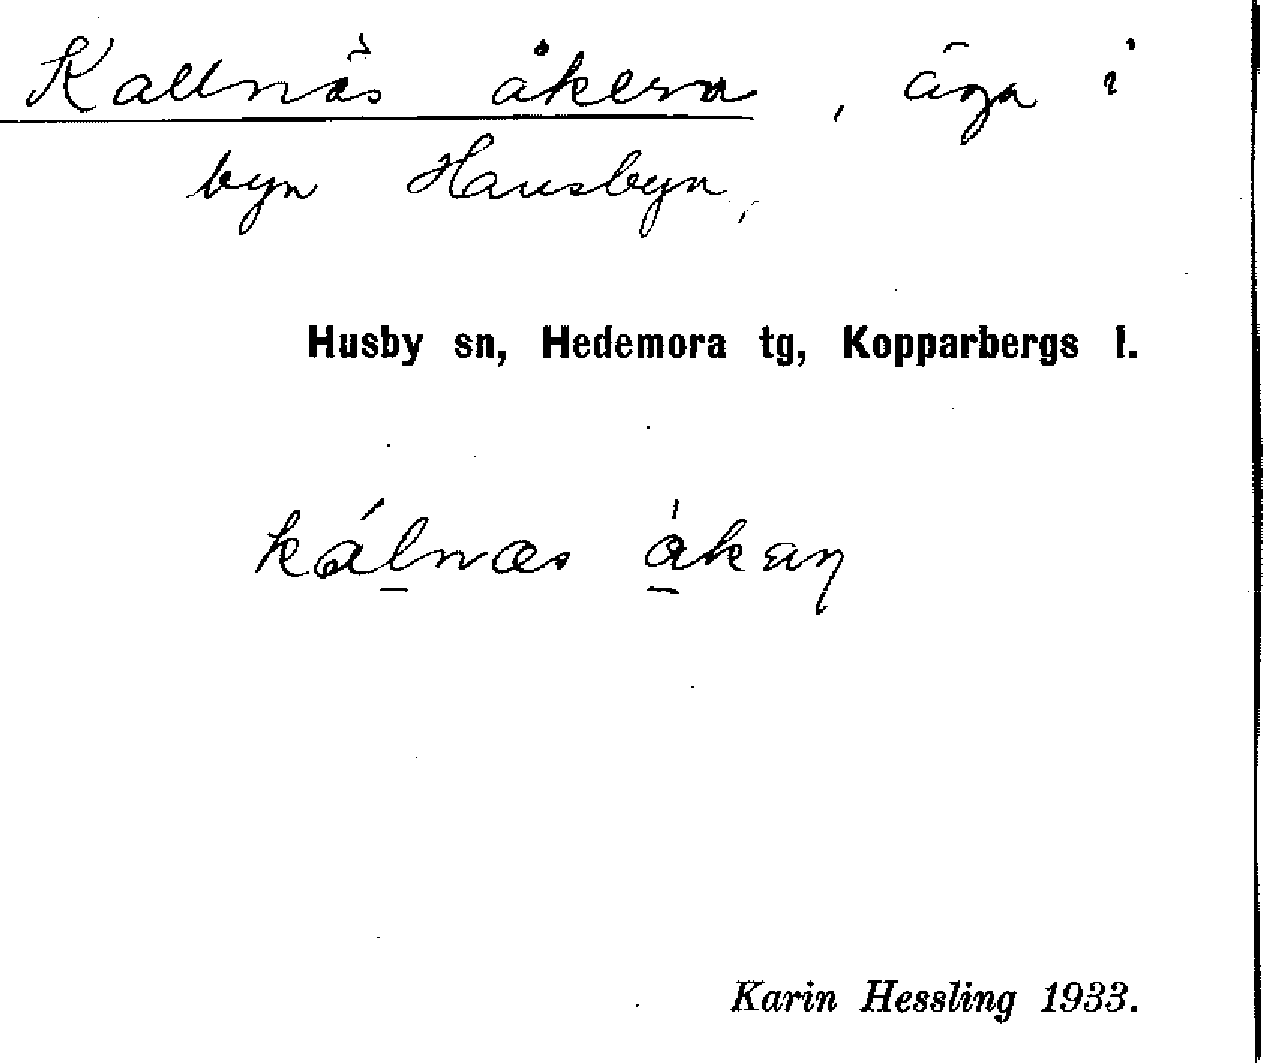 Kallnäs åkern, äga i
byn Hansbyn,
Husby sn, Hedemora tg, Kopparbergs l.
kálnæs åkæɳ
Karin Hessling 1933.